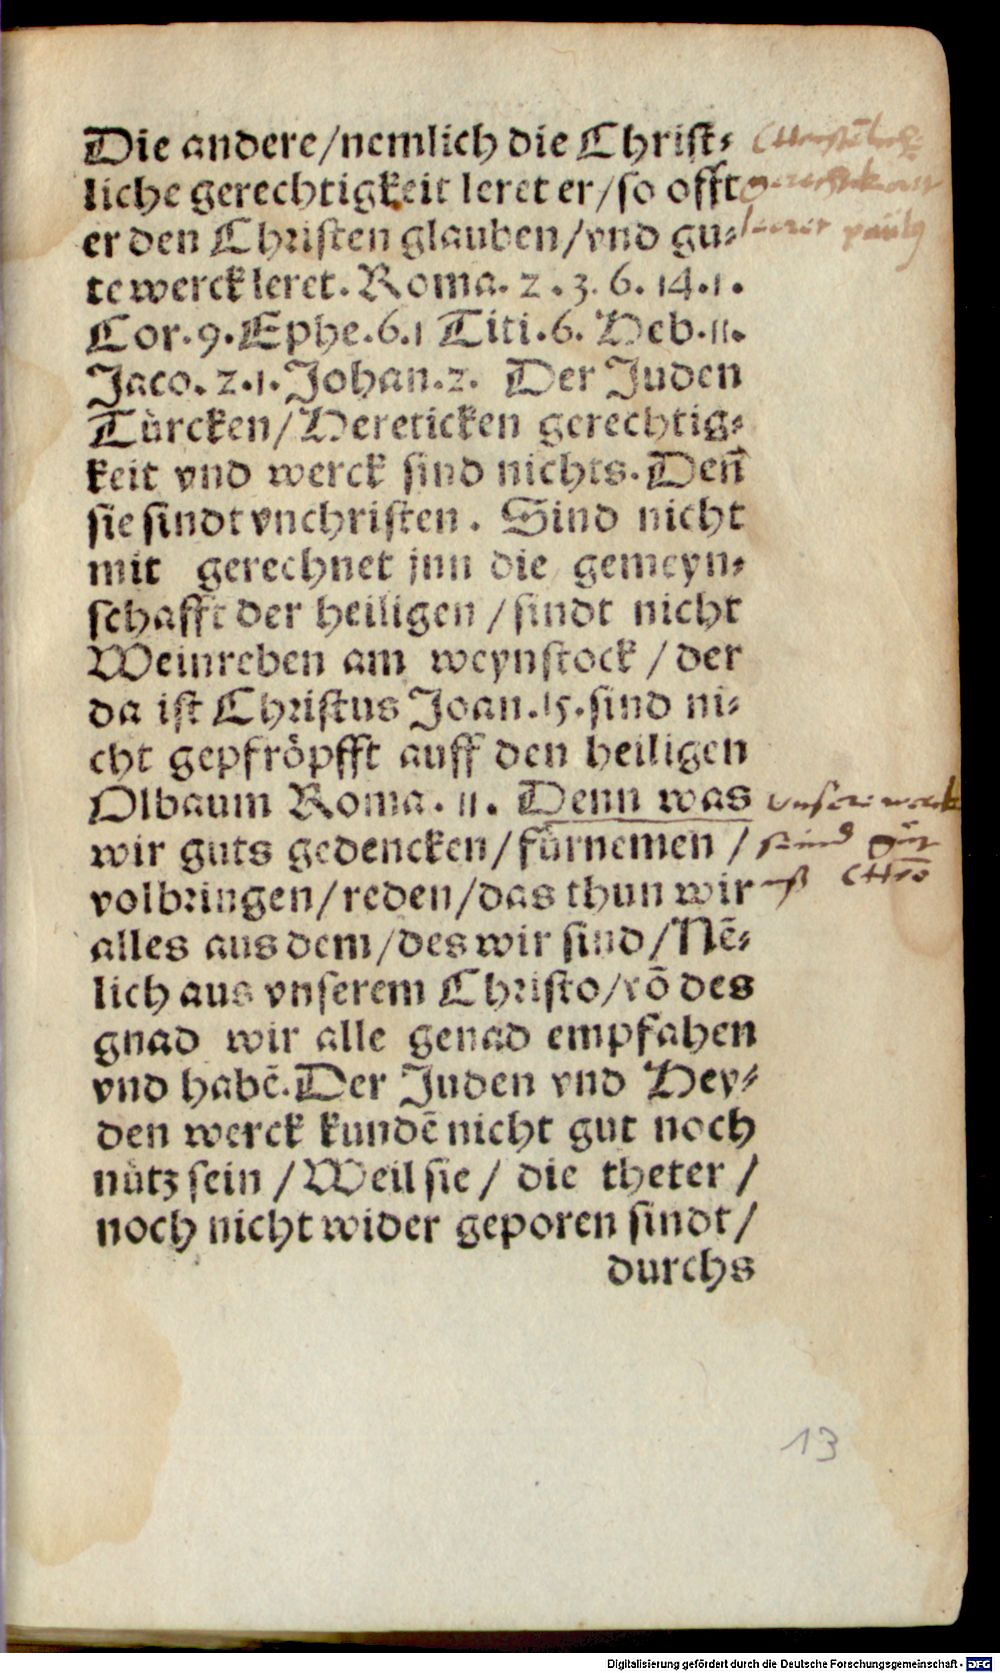 Die andere/nemlich die Christ⸗
liche gerechtigkeit leret er/so offt
er den Christen glauben/vnd gu⸗
te werck leret. Roma. 2. 3. 6. 14. 1.
Cor. 9. Ephe. 6. 1 Titi. 6. Heb. 11.
Jaco. 2. 1. Johan. 2. Der Juden
Tůrcken/Hereticken gerechtig⸗
keit vnd werck sind nichts. Deñ
sie sindt vnchristen. Sind nicht
mit gerechnet jnn die gemeyn⸗
schafft der heiligen/sindt nicht
Weinreben am weynstock/der
da ist Christus Joan. 15. sind ni⸗
cht gepfröpfft auff den heiligen
Olbaum Roma. 11. Denn was
wir guts gedencken/fürnemen/
volbringen/reden/das thun wir
alles aus dem/des wir sind/Nẽ⸗
lich aus vnserem Christo/võ des
gnad wir alle genad empfahen
vnd habẽ. Der Juden vnd Hey⸗
den werck kundẽ nicht gut noch
nütz sein/Weil sie/die theter/
noch nicht wider geporen sindt/
durchs
leeret paulus
vnsere werck
seind gut
auß Chro
13
Digitalisierung gefördert durch die Deutsche Forschungsgemeinschaft - DFG